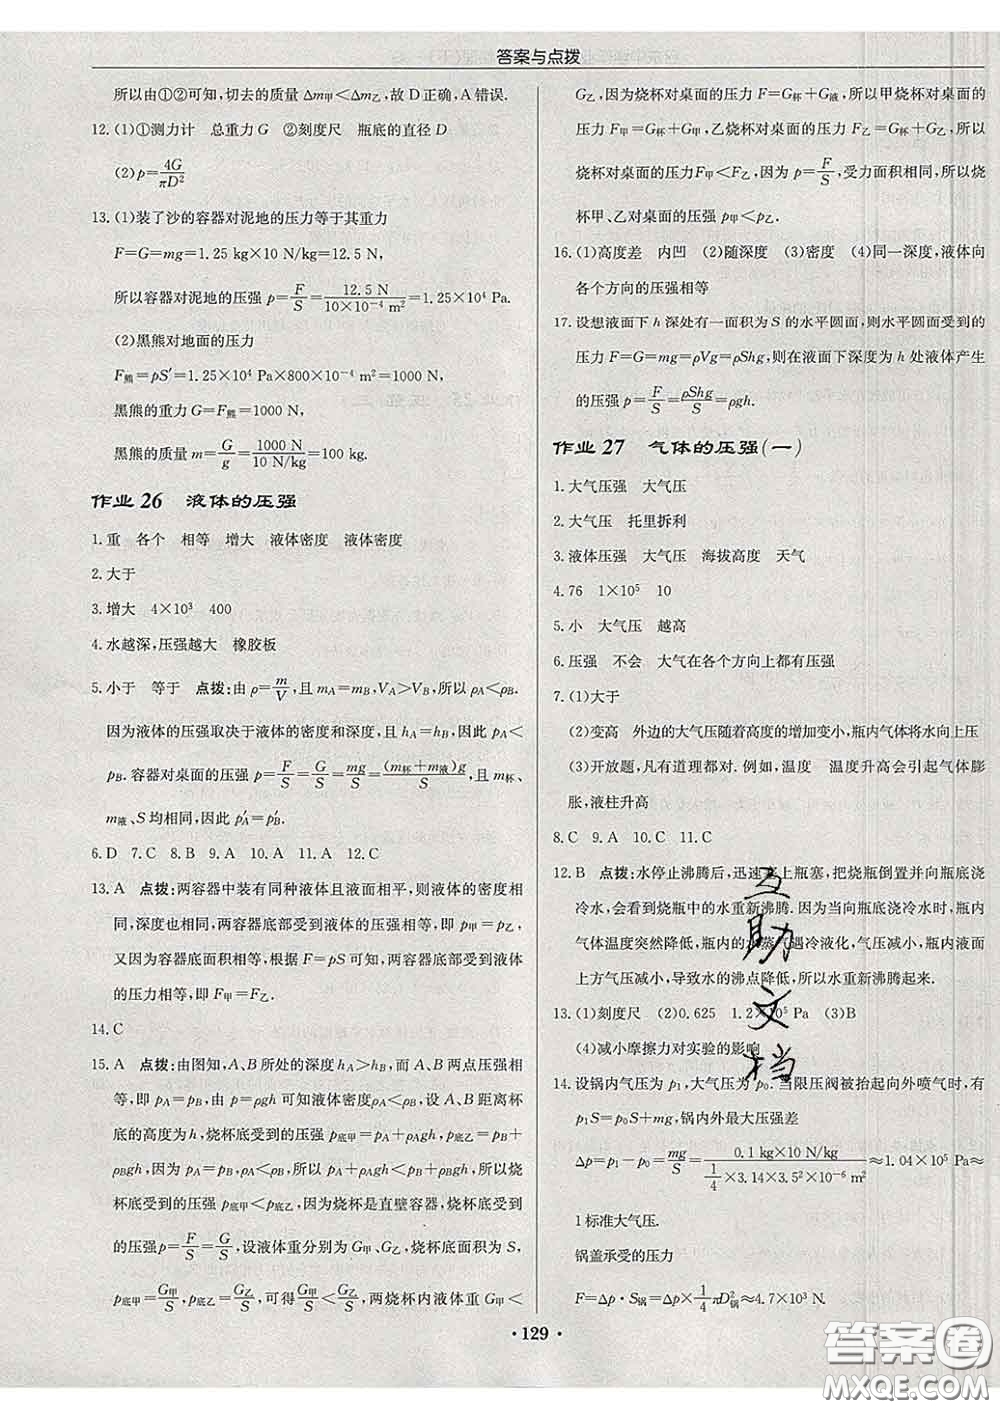 答案与点拨
所以由①②可知,切去的质量 Δm甲<Δm乙,故 D 正确,A 错误.
12.(1)①测力计 总重力 G ②刻度尺 瓶底的直径 D
(2)p=4G/πD²
13.(1)装了沙的容器对泥地的压力等于其重力
F=G=mg=1.25 kg×10 N/kg=12.5 N,
所以容器对泥地的压强 p=F/S=12.5 N/10×10⁻⁴ m²=1.25×10⁴ Pa.
(2)黑熊对地面的压力
F熊=pS′=1.25×10⁴ Pa×800×10⁻⁴ m²=1000 N,
黑熊的重力 G=F熊=1000 N,
黑熊的质量 m=G/g=1000 N/10 N/kg=100 kg.
作业26 液体的压强
1.重 各个 相等 增大 液体密度 液体密度
2.大于
3.增大 4×10³ 400
4.水越深,压强越大 橡胶板
5.小于 等于 点拨:由 ρ=m/V,且 mA=mB,VA>VB,所以 ρA<ρB.
因为液体的压强取决于液体的密度和深度,且 hA=hB,因此 pA<
pB.容器对桌面的压强 p=F/S=G/S=mg/S=(m杯+m液)g/S,且 m杯、
m液、S 均相同,因此 p′A=p′B.
6.D 7.C 8.B 9.A 10.A 11.A 12.C
13.A 点拨:两容器中装有同种液体且液面相平,则液体的密度相
同,深度也相同,两容器底部受到液体的压强相等,即 p甲=p乙,
又因为容器底面积相等,根据 F=pS 可知,两容器底部受到液体
的压力相等,即 F甲=F乙.
14.C
15.A 点拨:由图知,A、B 所处的深度 hA>hB,而 A、B 两点压强相
等,即 pA=pB,由 p=ρgh 可知液体密度 ρA<ρB,设 A、B 距离杯
底的高度为 h,烧杯底受到的压强 p底甲=pA+ρAgh,p底乙=pB+
ρBgh,因为 pA=pB,ρA<ρB,所以 pA+ρAgh<pB+ρBgh,所以烧
杯底受到的压强 p底甲<p底乙,因为烧杯是直壁容器,烧杯底受到
的压强 p=F/S=G/S,设液体重分别为 G甲、G乙,烧杯底面积为 S,则
p底甲=G甲/S,p底乙=G乙/S,可得G甲/S<G乙/S,两烧杯内液体重 G甲<
G乙,因为烧杯对桌面的压力 F=G杯+G液,所以甲烧杯对桌面的
压力 F甲=G杯+G甲,乙烧杯对桌面的压力 F乙=G杯+G乙,所以
烧杯对桌面的压力F甲<F乙,因为 p=F/S,受力面积相同,所以烧
杯甲、乙对桌面的压强 p甲<p乙.
16.(1)高度差 内凹 (2)随深度 (3)密度 (4)同一深度,液体向
各个方向的压强相等
17.设想液面下 h 深处有一面积为 S 的水平圆面,则水平圆面受到的
压力 F=G=mg=ρVg=ρShg,则在液面下深度为 h 处液体产生
的压强 p=F/S=ρShg/S=ρgh.
作业27 气体的压强(一)
1.大气压强 大气压
2.大气压 托里拆利
3.液体压强 大气压 海拔高度 天气
4.76 1×10⁵ 10
5.小 大气压 越高
6.压强 不会 大气在各个方向上都有压强
7.(1)大于
(2)变高 外边的大气压随着高度的增加变小,瓶内气体将水向上压
(3)开放题,凡有道理都对.例如,温度 温度升高会引起气体膨
胀,液柱升高
8.C 9.A 10.C 11.C
12.B 点拨:水停止沸腾后,迅速塞上瓶塞,把烧瓶倒置并向瓶底浇
冷水,会看到烧瓶中的水重新沸腾.因为当向瓶底浇冷水时,瓶内
气体温度突然降低,瓶内的水蒸气遇冷液化,气压减小,瓶内液面
上方气压减小,导致水的沸点降低,所以水重新沸腾起来.
13.(1)刻度尺 (2)0.625 1.2×10⁵ Pa (3)B
(4)减小摩擦力对实验的影响
14.设锅内气压为 p₁,大气压为 p₀.当限压阀被抬起向外喷气时,有
p₁S=p₀S+mg,锅内外最大压强差
Δp=p₁-p₀=mg/S=0.1 kg×10 N/kg/1/4×3.14×3.5²×10⁻⁶ m²≈1.04×10⁵ Pa≈
1 标准大气压.
锅盖承受的压力
F=Δp·S锅=Δp×1/4πD²锅≈4.7×10³ N.
互助文档
·129·
答案圈
MXQE.COM